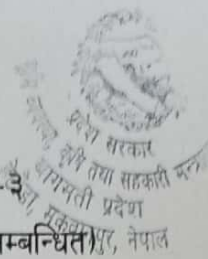 प्रदेश सरकार
कृषि तथा सहकारी
बागमती प्रदेश
मकवानपुर, नेपाल
३
म्बन्धित)